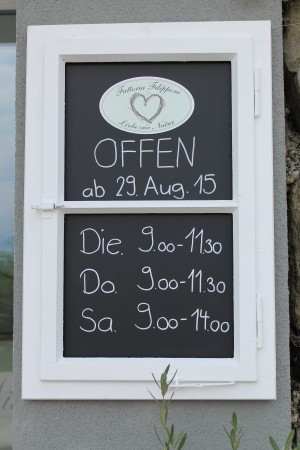 Fattoria Filippom
Liebe zur Natur
OFFEN
ab 29. Aug. 15
Die. 9.00-11.30
Do. 9.00-11.30
Sa. 9.00-14.00